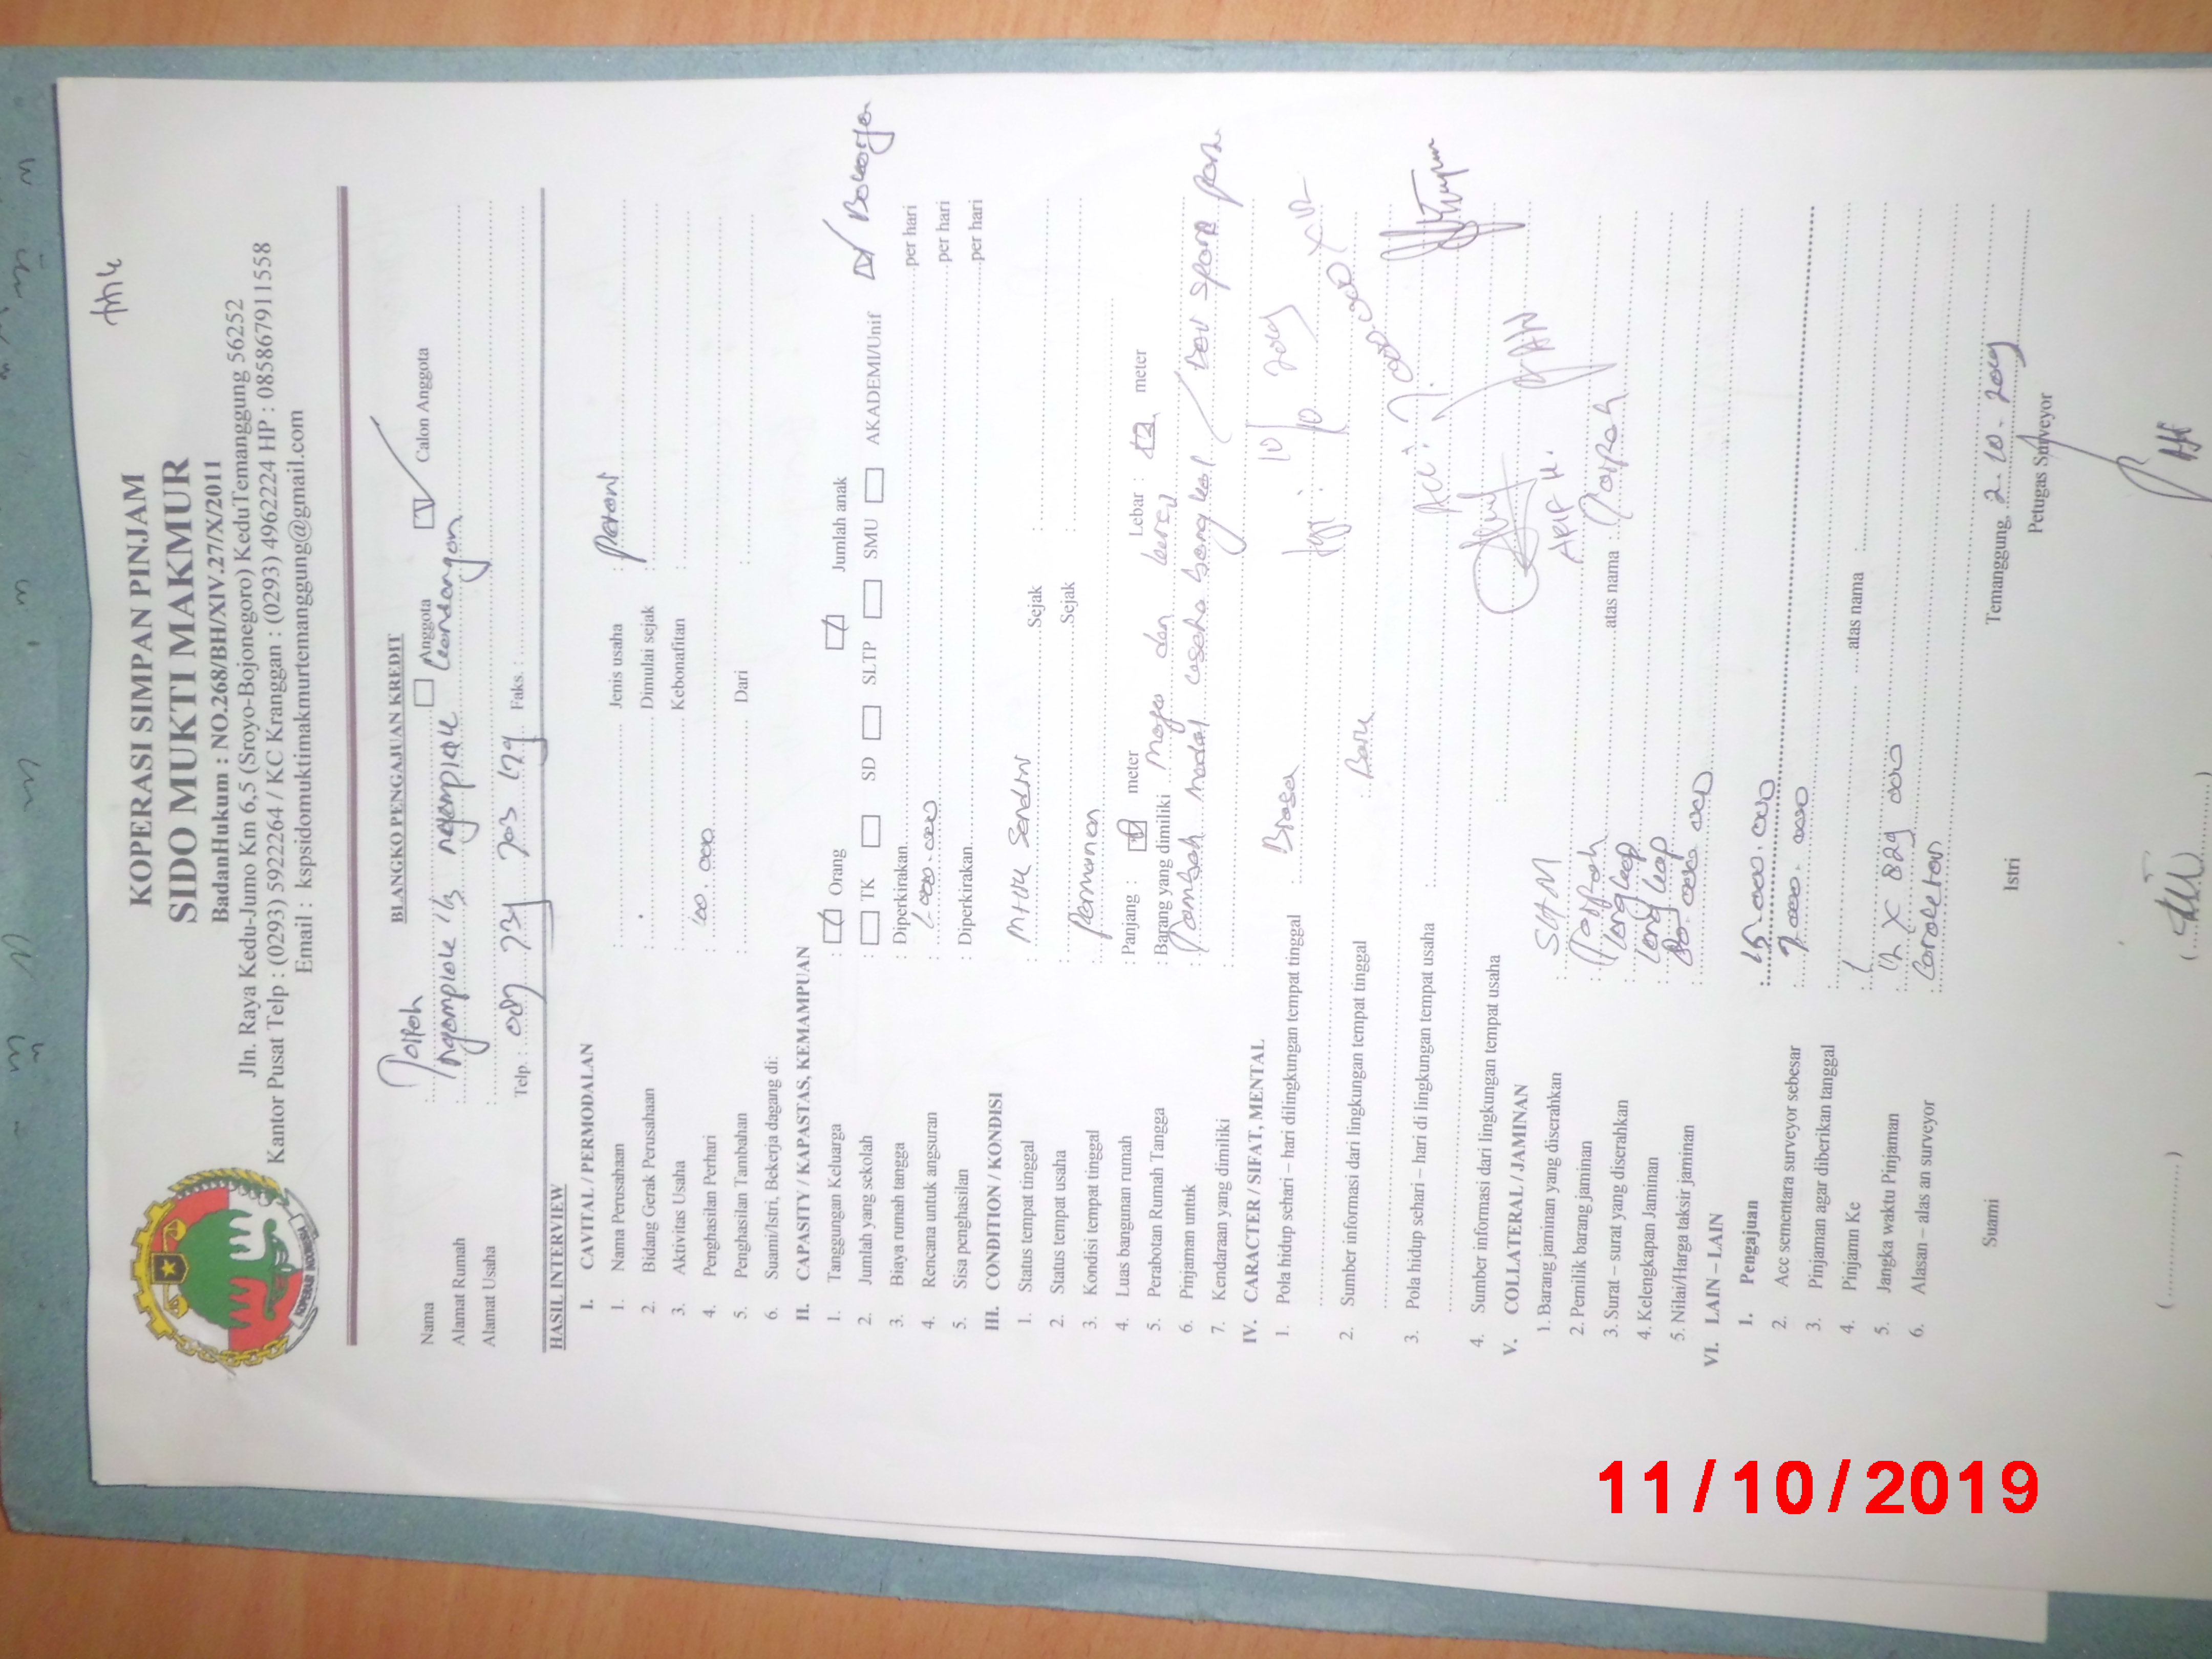 KOPERASI SIMPAN PINJAM
SIDO MUKTI MAKMUR
BadanHukum : NO.268/BH/XIV.27/X/2011
Jln. Raya Kedu-Jumo Km 6,5 (Sroyo-Bojonegoro) KeduTemanggung 56252
Kantor Pusat Telp : (0293) 5922264 / KC Kranggan : (0293) 4962224 HP : 085867911558
Email : kspsidomuktimakmurtemanggung@gmail.com
KOPERASI INDONESIA
BLANGKO PENGAJUAN KREDIT
Nama : Anggota Calon Anggota
Alamat Rumah : ngamplok 1/3 ngamplak kandangan
Alamat Usaha :
Telp : 087 731 703 179 Faks. :
HASIL INTERVIEW
I. CAVITAL / PERMODALAN
1. Nama Perusahaan : Jenis usaha : Petani
2. Bidang Gerak Perusahaan : Dimulai sejak :
3. Aktivitas Usaha : Kebonafitan :
4. Penghasilan Perhari : 100.000
5. Penghasilan Tambahan : Dari :
6. Suami/Istri, Bekerja dagang di:
II. CAPASITY / KAPASTAS, KEMAMPUAN
1. Tanggungan Keluarga : Orang Jumlah anak
2. Jumlah yang sekolah : TK SD SLTP SMU AKADEMI/Unif
3. Biaya rumah tangga : Diperkirakan per hari
4. Rencana untuk angsuran : 1.000.000 per hari
5. Sisa penghasilan : Diperkirakan per hari
III. CONDITION / KONDISI
1. Status tempat tinggal : Milik Sendiri Sejak :
2. Status tempat usaha : Sejak :
3. Kondisi tempat tinggal : Permanen
4. Luas bangunan rumah : Panjang : meter Lebar : meter
5. Perabotan Rumah Tangga : Barang yang dimiliki Meja dan kursi
6. Pinjaman untuk : Tambah modal usaha bengkel / Beli spare part
7. Kendaraan yang dimiliki :
IV. CARACTER / SIFAT, MENTAL
1. Pola hidup sehari – hari dilingkungan tempat tinggal : Biasa
10/10 2019
2. Sumber informasi dari lingkungan tempat tinggal : Baru
3. Pola hidup sehari – hari di lingkungan tempat usaha :
Acc : 7.000.000 x 12
4. Sumber informasi dari lingkungan tempat usaha :
ARIF H.
V. COLLATERAL / JAMINAN
1. Barang jaminan yang diserahkan : SHM
2. Pemilik barang jaminan : atas nama :
3. Surat – surat yang diserahkan : Lengkap
4. Kelengkapan Jaminan : Lengkap
5. Nilai/Harga taksir jaminan :
VI. LAIN – LAIN
1. Pengajuan : 15.000.000
2. Acc sementara surveyor sebesar : 7.000.000
3. Pinjaman agar diberikan tanggal :
4. Pinjamn Ke : 1 atas nama :
5. Jangka waktu Pinjaman : 12 X 829 000
6. Alasan – alas an surveyor :
Temanggung, 2.10.2019
Suami Istri Petugas Surveyor
11/10/2019